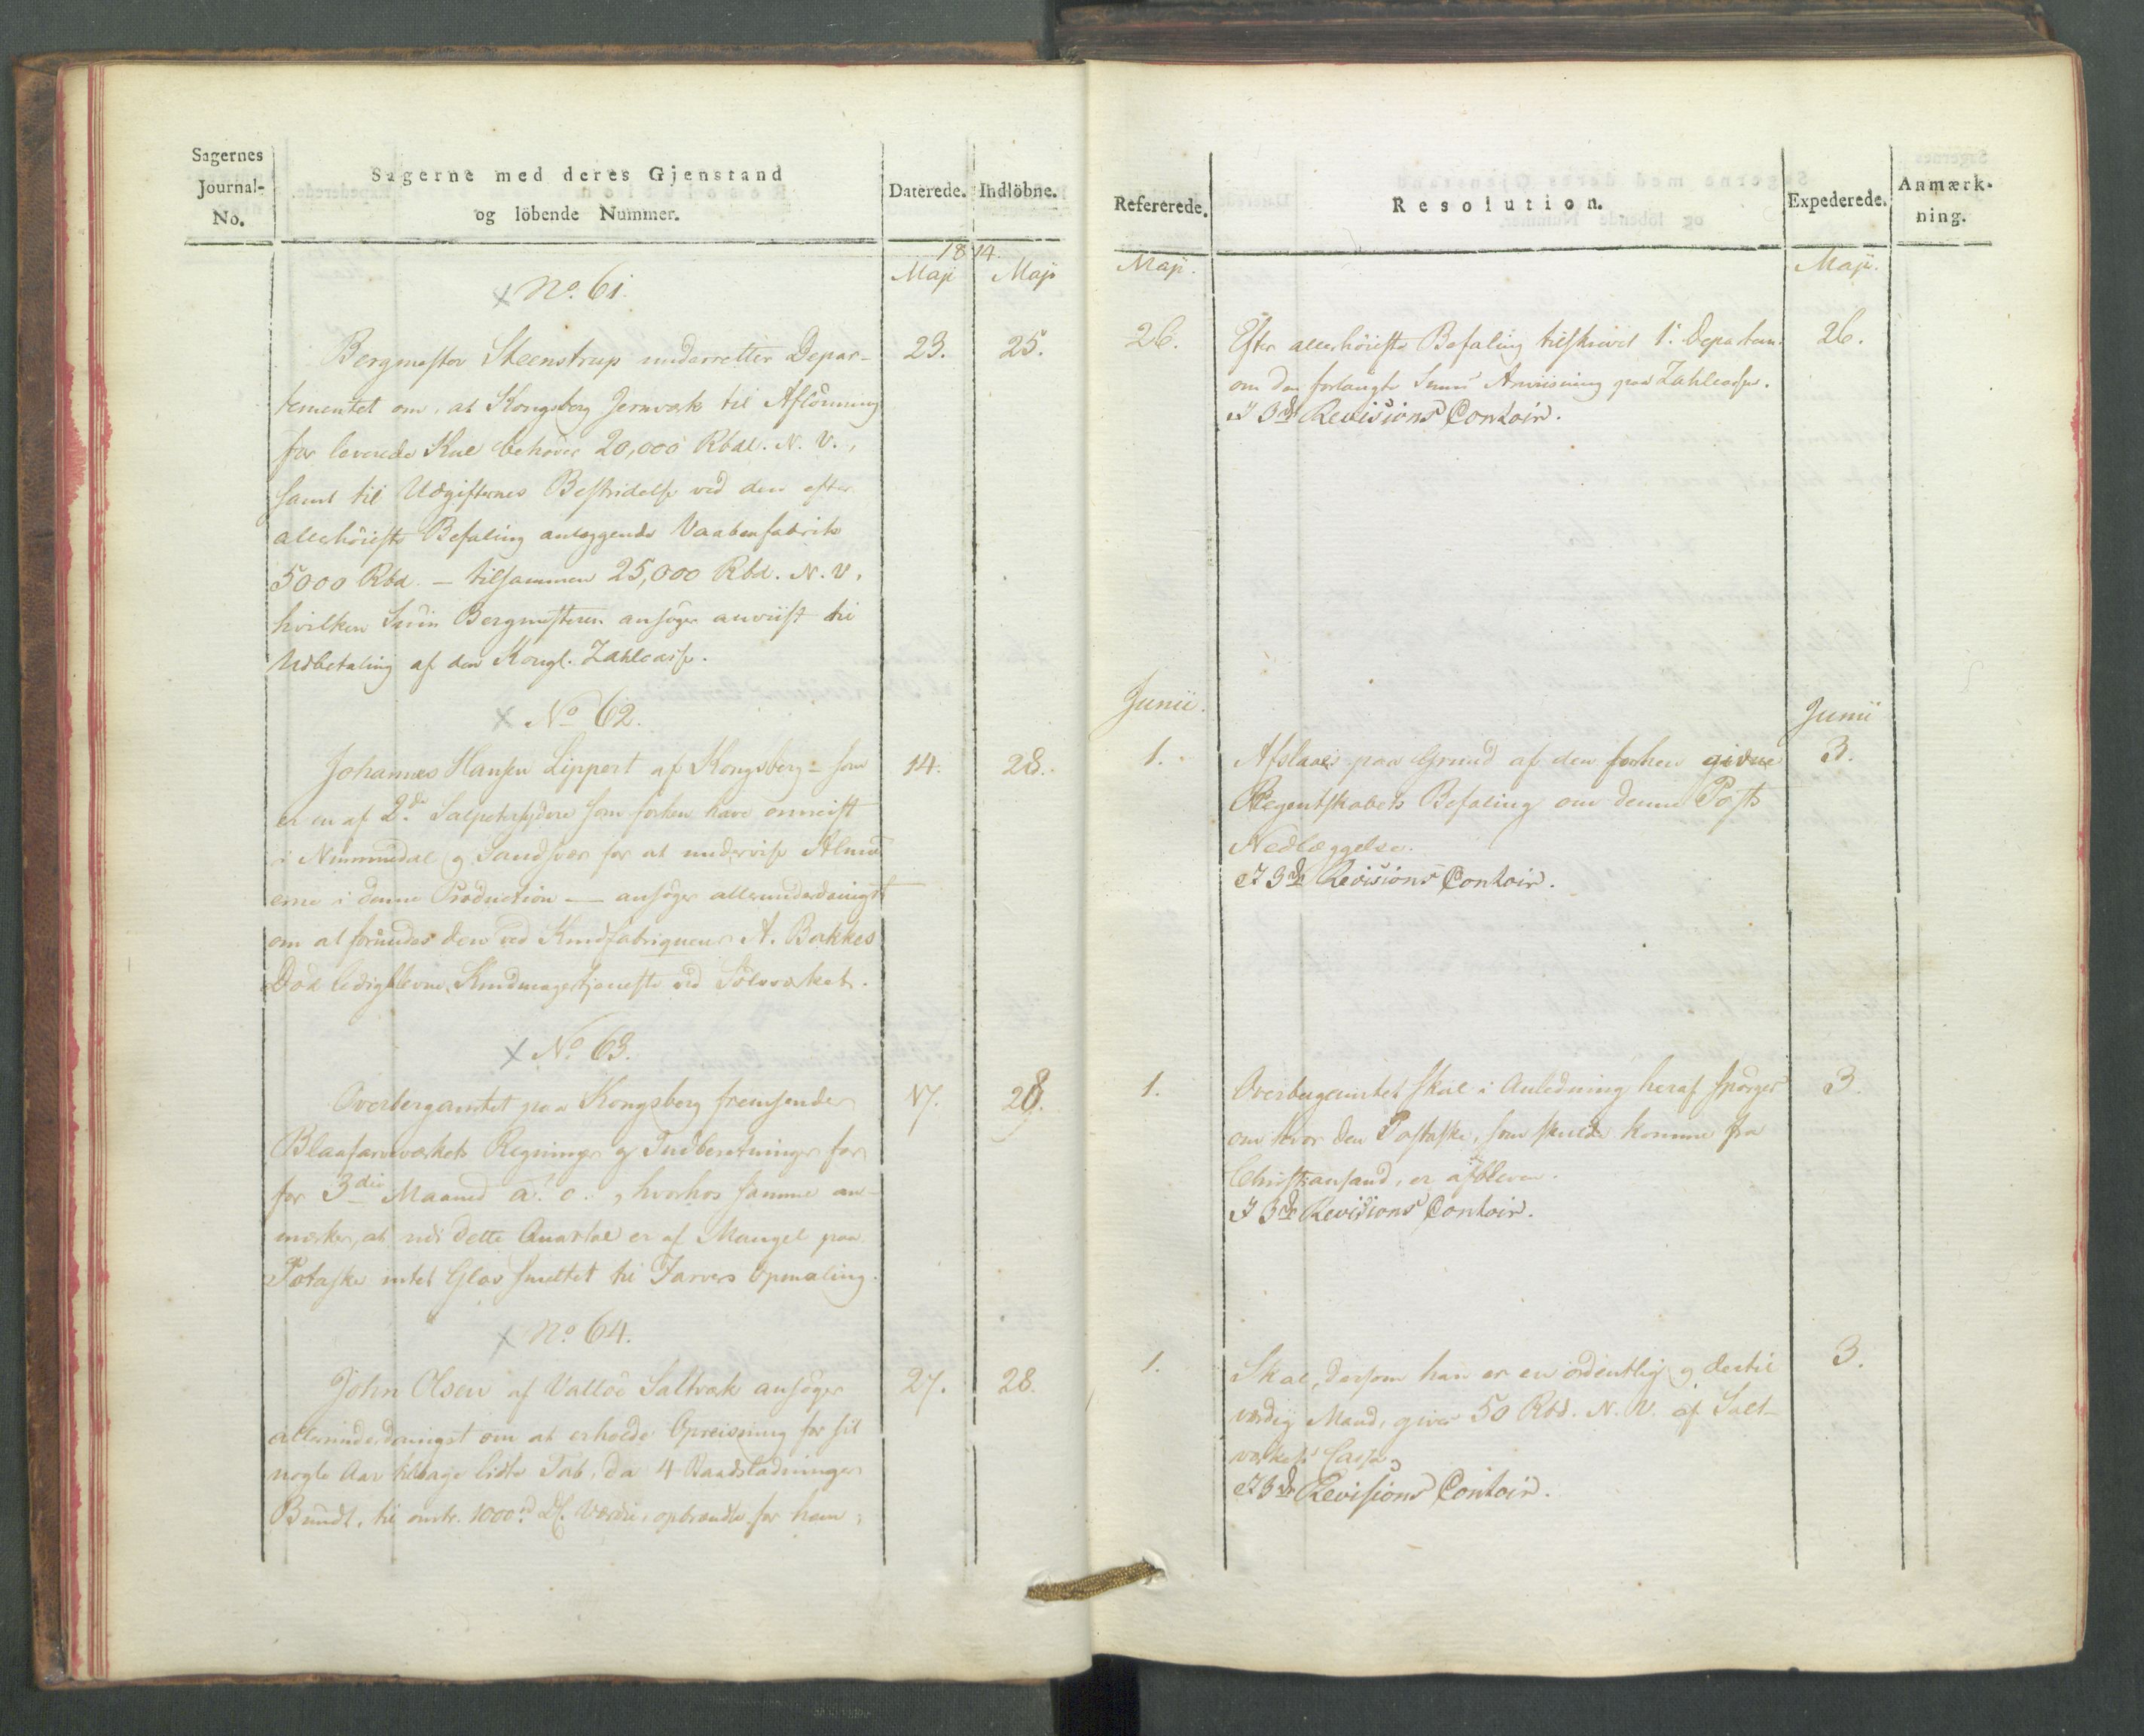 Sagernes
Journal-
No.
Sagerne med deres Gjenstand
og löbende Nummer.
Daterede.
Indlöbne.
1814.
Maji
Maji
No. 61.
Bergmester Steenstrup underretter Depar-
23.
25.
tementet om, at Kongsberg Jernværk til Aflönning
for leverede Kul behöver 20,000 Rbdl. N. V.,
samt til Udgifternes Bestridelse ved den efter
allerhöieste Befaling anlæggende Vaabenfabrik
5000 Rbd. - tilsammen 25,000 Rbd. N. V.
hvilken Sum Bergmesteren ansöger anviist til
Udbetaling af den Kongl. Zahlcasse.
No 62.
Johannes Hansen Lippert af Kongsberg - som
14.
28.
er en af 2de Salpetersydere som forhen have
i Nummedal og Sandsvær for at undervise Almu
erne i denne Production - ansöger allerunderdanigst
om at forundes den ved Krudfabriqueur A. Bakkes
Död ledigblevne Krudmagertjeneste ved Sölvværket.
No. 63.
Overbergamtet paa Kongsberg fremsender
17.
28.
Blaafarveværkets Regninger og Indberetninger for
for 3die Maaned a. c., hvorhos samme an-
mærker, at udi dette Quartal er af Mangel paa
Potaske intet Glas smeltet til Farvers Opmaling.
No. 64.
John Olsen af Valloe Saltværk ansöger
27.
28.
allerunderdanigst om at erholde Opreisning for sit
nogle Aar tilbage lidte Tab, da 4 Baadsladninger
Bundt, til omtr. 1000 Værdie, opbrændte for ham,
Refererede.
Resolution.
Expederede.
Anmærk-
ning.
Maji.
Maji.
26.
Efter allerhöieste Befaling tilskrevet 1. Departem.
26.
om den forlangte Sums Anviisning paa Zahlcassen.
I 3die Revisions Contoir.
Junii.
Junii
1.
Afslaaes paa Grund af den forhen givne
3.
Regentskabets Befaling om denne Posts
Nedlæggelse.
I 3die Revisions Contoir.
1.
Overbergamtet skal i Anledning heraf spörges
3.
om hvor den Potaske, som skulde komme fra
Christiansand, er afbleven.
I 3die Revisions Contoir.
1.
Skal, dersom han er en ordentlig og dertil
3.
værdig Mand, gives 50 Rbd. N. V. af Salt-
værkets Cassa.
I 3die Revisions Contoir.